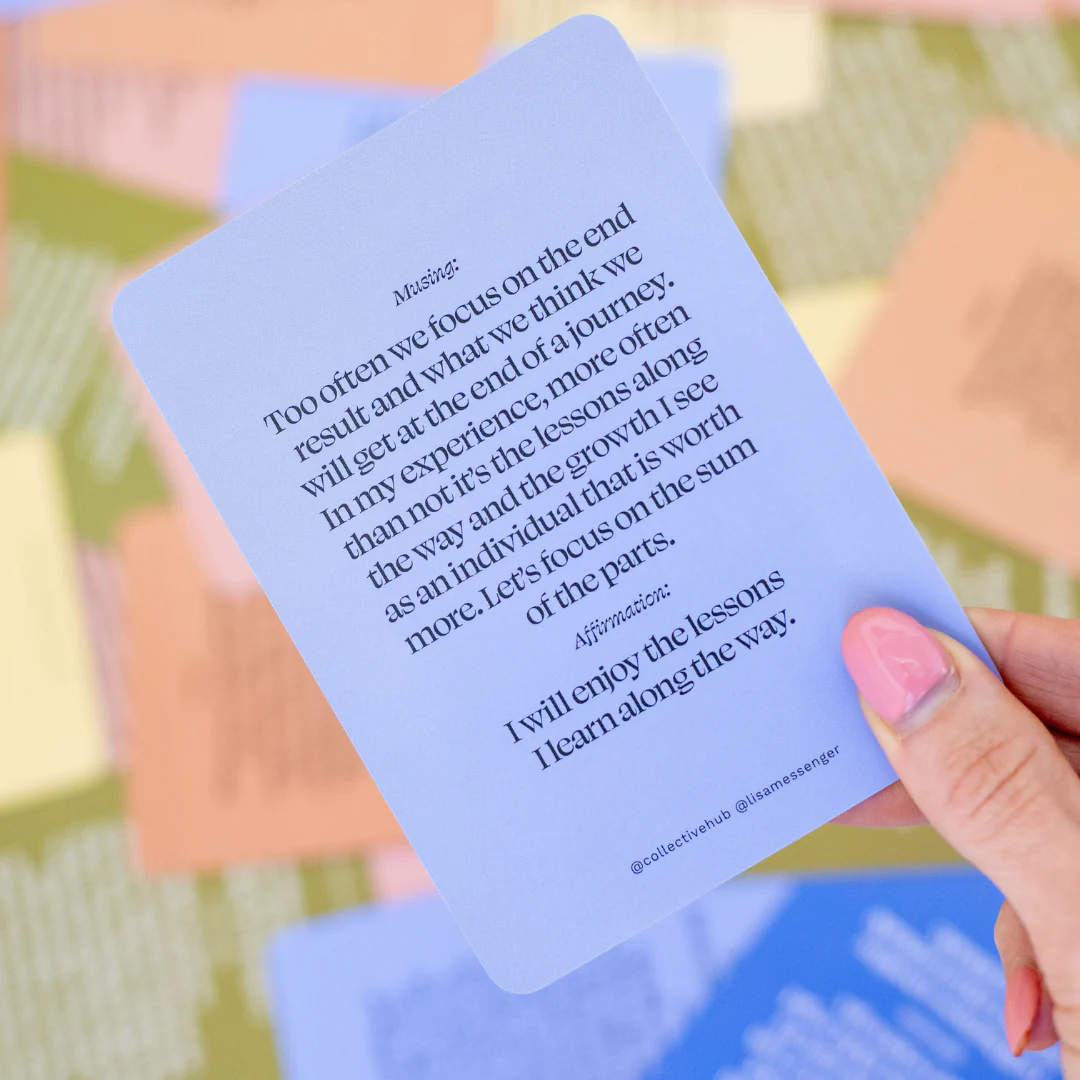 Musing:
Too often we focus on the end
result and what we think we
will get at the end of a journey.
In my experience, more often
than not it's the lessons along
the way and the growth I see
as an individual that is worth
more. Let's focus on the sum
of the parts.
Affirmation:
I will enjoy the lessons
I learn along the way.
@collectivehub @lisamessenger